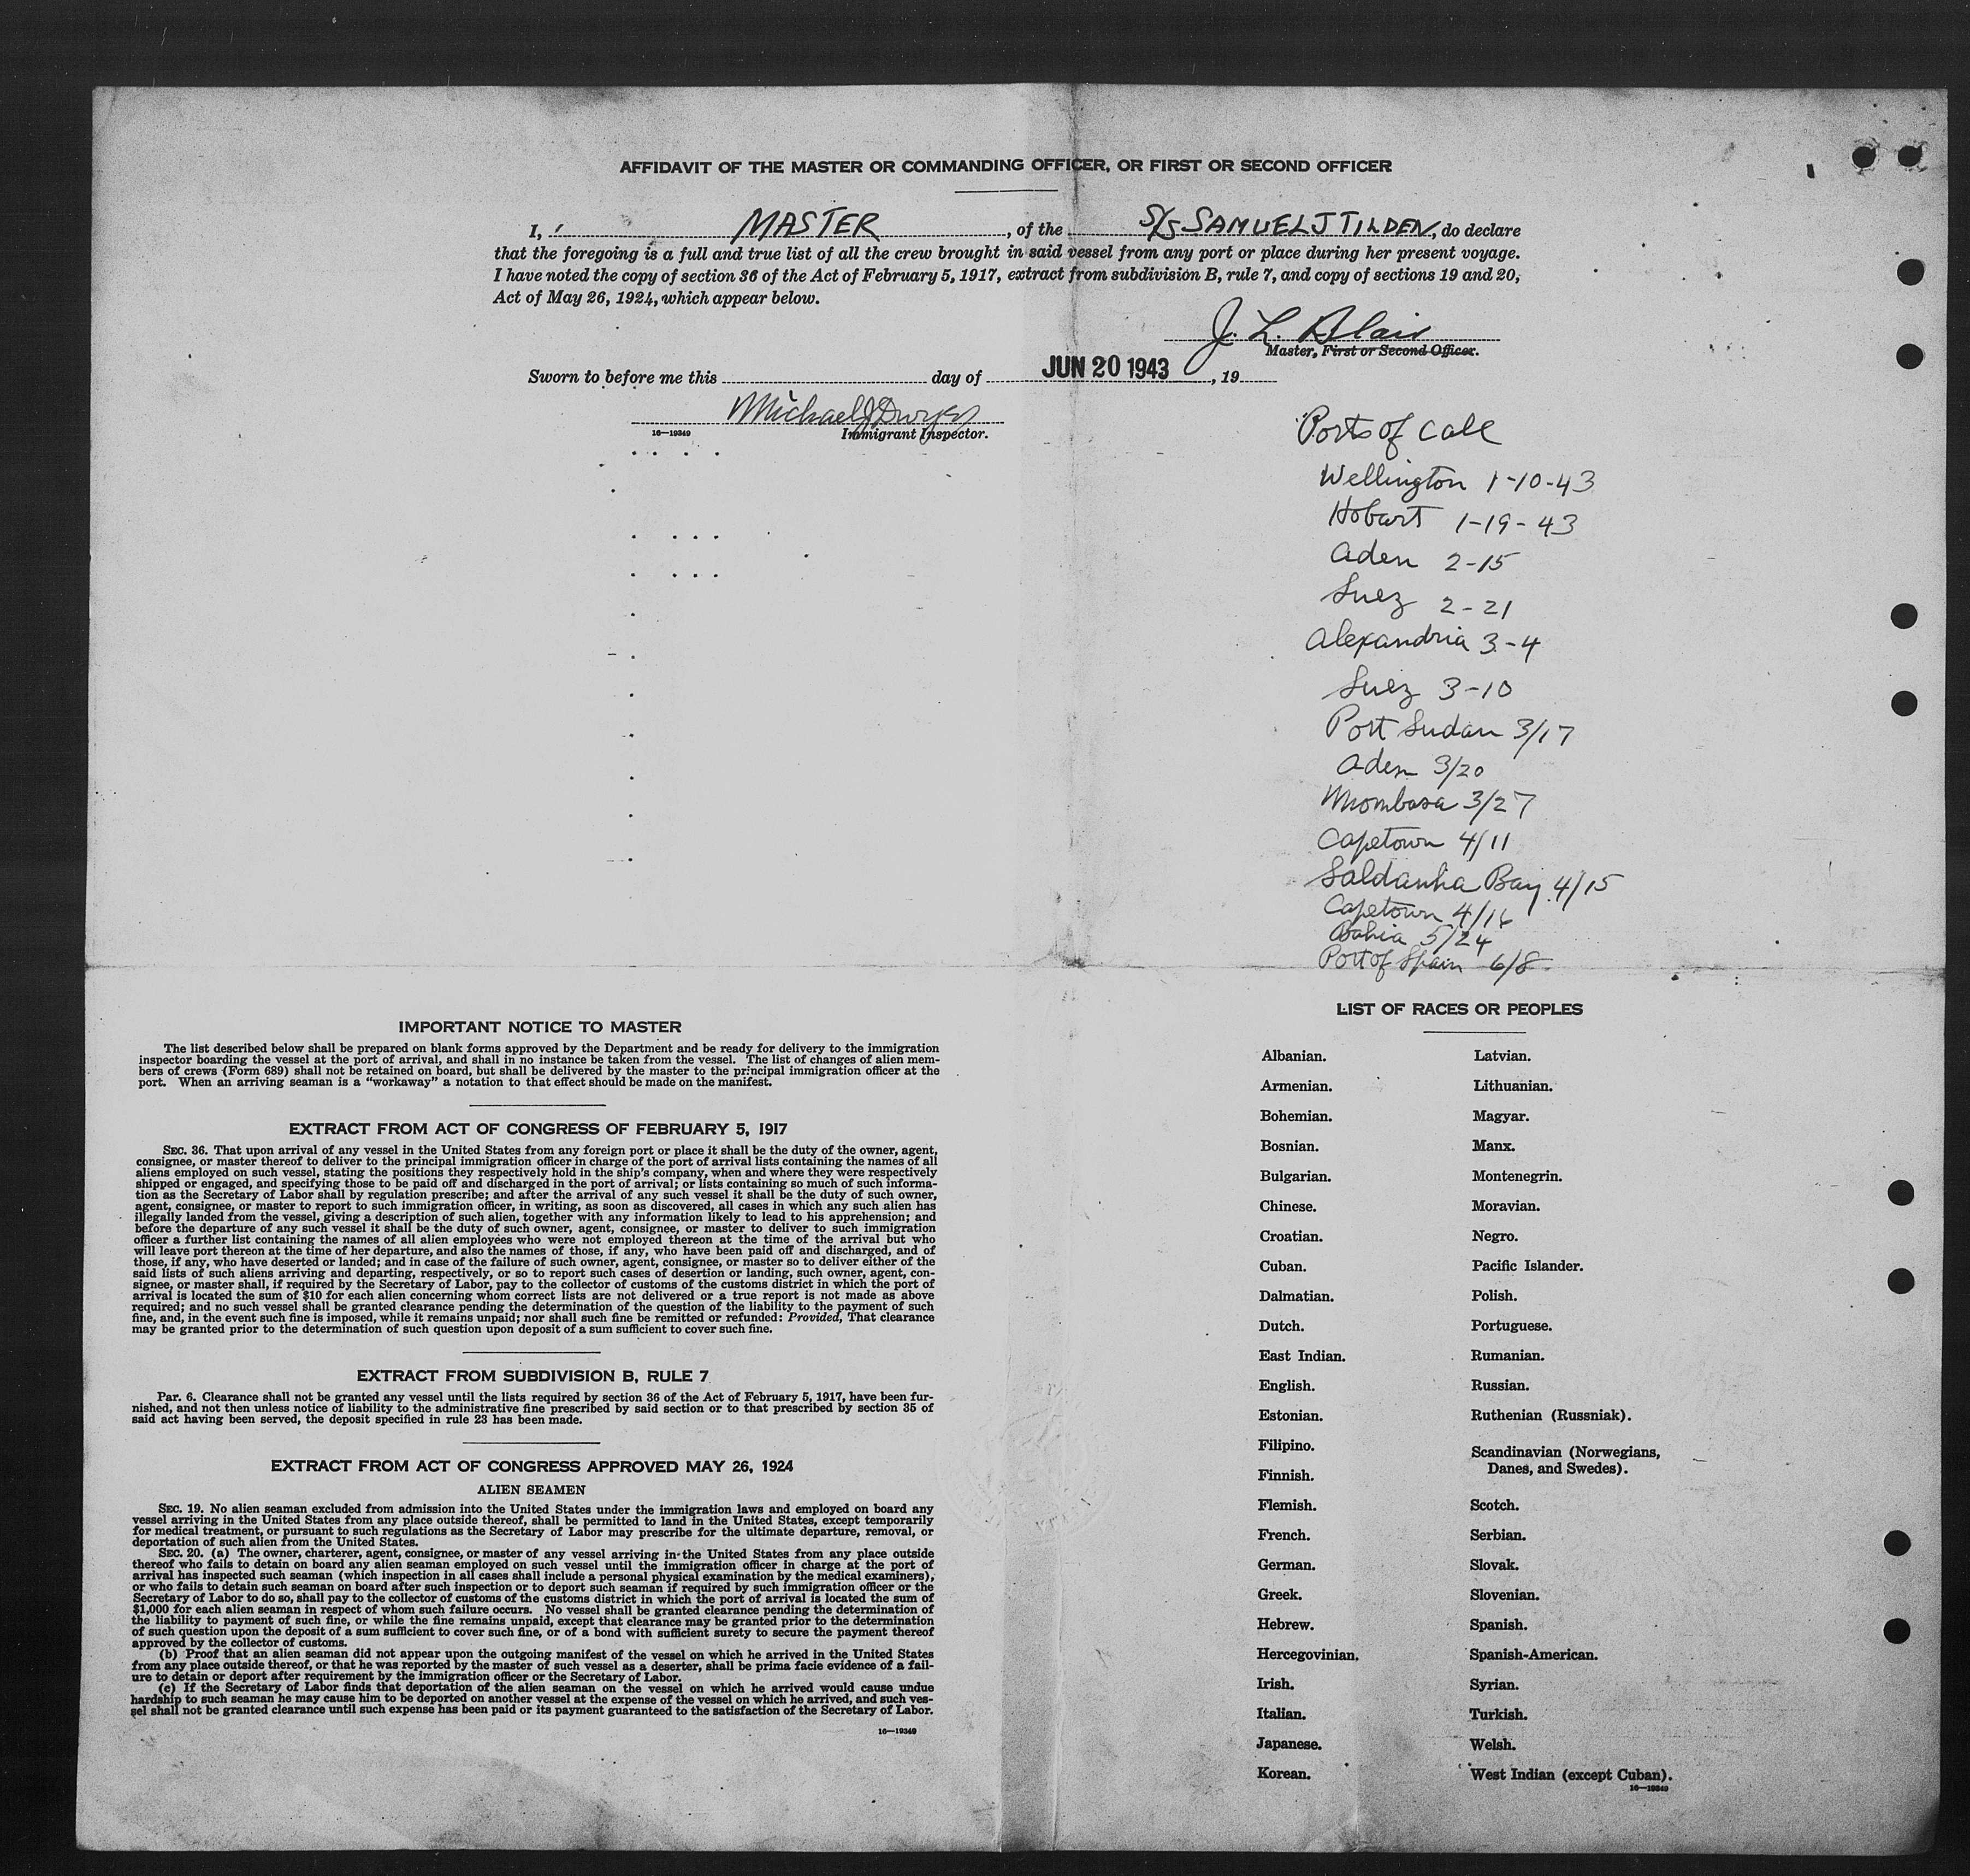 AFFIDAVIT OF THE MASTER OR COMMANDING OFFICER, OR FIRST OR SECOND OFFICER
I, MASTER, of the S/S SAMUEL J TILDEN, do declare
that the foregoing is a full and true list of all the crew brought in said vessel from any port or place during her present voyage.
I have noted the copy of section 36 of the Act of February 5, 1917, extract from subdivision B, rule 7, and copy of sections 19 and 20,
Act of May 26, 1924, which appear below.
J. L. Blair
Master, First or Second Officer.
Sworn to before me this day of JUN 20 1943, 19
Michael J Dwyer
16—19349 Immigrant Inspector.
Ports of call
Wellington 1-10-43
Hobart 1-19-43
Aden 2-15
Suez 2-21
Alexandria 3-4
Suez 3-10
Port Sudan 3/17
Aden 3/20
Mombasa 3/27
Capetown 4/11
Saldanha Bay 4/15
Capetown 4/16
Bahia 5/24
Port of Spain 6/8
IMPORTANT NOTICE TO MASTER
The list described below shall be prepared on blank forms approved by the Department and be ready for delivery to the immigration
inspector boarding the vessel at the port of arrival, and shall in no instance be taken from the vessel. The list of changes of alien mem-
bers of crews (Form 689) shall not be retained on board, but shall be delivered by the master to the principal immigration officer at the
port. When an arriving seaman is a “workaway” a notation to that effect should be made on the manifest.
EXTRACT FROM ACT OF CONGRESS OF FEBRUARY 5, 1917
SEC. 36. That upon arrival of any vessel in the United States from any foreign port or place it shall be the duty of the owner, agent,
consignee, or master thereof to deliver to the principal immigration officer in charge of the port of arrival lists containing the names of all
aliens employed on such vessel, stating the positions they respectively hold in the ship's company, when and where they were respectively
shipped or engaged, and specifying those to be paid off and discharged in the port of arrival; or lists containing so much of such informa-
tion as the Secretary of Labor shall by regulation prescribe; and after the arrival of any such vessel it shall be the duty of such owner,
agent, consignee, or master to report to such immigration officer, in writing, as soon as discovered, all cases in which any such alien has
illegally landed from the vessel, giving a description of such alien, together with any information likely to lead to his apprehension; and
before the departure of any such vessel it shall be the duty of such owner, agent, consignee, or master to deliver to such immigration
officer a further list containing the names of all alien employees who were not employed thereon at the time of the arrival but who
will leave port thereon at the time of her departure, and also the names of those, if any, who have been paid off and discharged, and of
those, if any, who have deserted or landed; and in case of the failure of such owner, agent, consignee, or master so to deliver either of the
said lists of such aliens arriving and departing, respectively, or so to report such cases of desertion or landing, such owner, agent, con-
signee, or master shall, if required by the Secretary of Labor, pay to the collector of customs of the customs district in which the port of
arrival is located the sum of $10 for each alien concerning whom correct lists are not delivered or a true report is not made as above
required; and no such vessel shall be granted clearance pending the determination of the question of the liability to the payment of such
fine, and, in the event such fine is imposed, while it remains unpaid; nor shall such fine be remitted or refunded: Provided, That clearance
may be granted prior to the determination of such question upon deposit of a sum sufficient to cover such fine.
EXTRACT FROM SUBDIVISION B, RULE 7
Par. 6. Clearance shall not be granted any vessel until the lists required by section 36 of the Act of February 5, 1917, have been fur-
nished, and not then unless notice of liability to the administrative fine prescribed by said section or to that prescribed by section 35 of
said act having been served, the deposit specified in rule 23 has been made.
EXTRACT FROM ACT OF CONGRESS APPROVED MAY 26, 1924
ALIEN SEAMEN
SEC. 19. No alien seaman excluded from admission into the United States under the immigration laws and employed on board any
vessel arriving in the United States from any place outside thereof, shall be permitted to land in the United States, except temporarily
for medical treatment, or pursuant to such regulations as the Secretary of Labor may prescribe for the ultimate departure, removal, or
deportation of such alien from the United States.
SEC. 20. (a) The owner, charterer, agent, consignee, or master of any vessel arriving in the United States from any place outside
thereof who fails to detain on board any alien seaman employed on such vessel until the immigration officer in charge at the port of
arrival has inspected such seaman (which inspection in all cases shall include a personal physical examination by the medical examiners),
or who fails to detain such seaman on board after such inspection or to deport such seaman if required by such immigration officer or the
Secretary of Labor to do so, shall pay to the collector of customs of the customs district in which the port of arrival is located the sum of
$1,000 for each alien seaman in respect of whom such failure occurs. No vessel shall be granted clearance pending the determination of
the liability to payment of such fine, or while the fine remains unpaid, except that clearance may be granted prior to the determination
of such question upon the deposit of a sum sufficient to cover such fine, or of a bond with sufficient surety to secure the payment thereof
approved by the collector of customs.
(b) Proof that an alien seaman did not appear upon the outgoing manifest of the vessel on which he arrived in the United States
from any place outside thereof, or that he was reported by the master of such vessel as a deserter, shall be prima facie evidence of a fail-
ure to detain or deport after requirement by the immigration officer or the Secretary of Labor.
(c) If the Secretary of Labor finds that deportation of the alien seaman on the vessel on which he arrived would cause undue
hardship to such seaman he may cause him to be deported on another vessel at the expense of the vessel on which he arrived, and such ves-
sel shall not be granted clearance until such expense has been paid or its payment guaranteed to the satisfaction of the Secretary of Labor.
16—19349
LIST OF RACES OR PEOPLES
Albanian. Latvian.
Armenian. Lithuanian.
Bohemian. Magyar.
Bosnian. Manx.
Bulgarian. Montenegrin.
Chinese. Moravian.
Croatian. Negro.
Cuban. Pacific Islander.
Dalmatian. Polish.
Dutch. Portuguese.
East Indian. Rumanian.
English. Russian.
Estonian. Ruthenian (Russniak).
Filipino. Scandinavian (Norwegians,
Finnish. Danes, and Swedes).
Flemish. Scotch.
French. Serbian.
German. Slovak.
Greek. Slovenian.
Hebrew. Spanish.
Hercegovinian. Spanish-American.
Irish. Syrian.
Italian. Turkish.
Japanese. Welsh.
Korean. West Indian (except Cuban).
16—19349